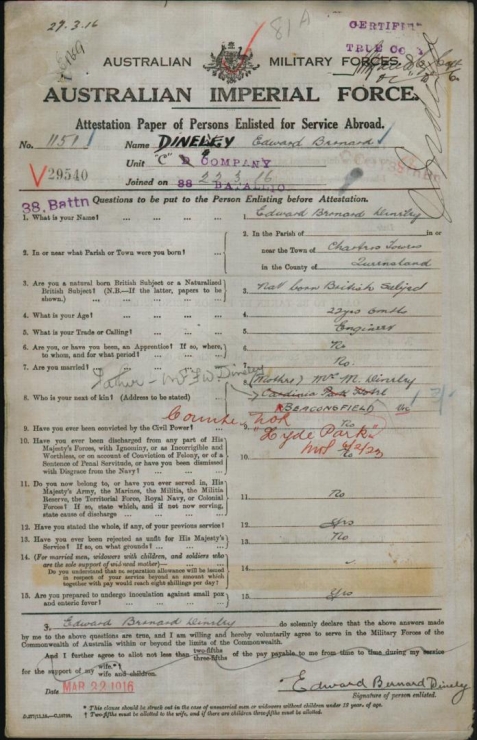 29.3.16
81A
CERTIFIED
TRUE COPY
AUSTRALIAN MILITARY FORCES.
AUSTRALIAN IMPERIAL FORCE.
Attestation Paper of Persons Enlisted for Service Abroad.
No. 1151 Name DINELEY Edward Bronard
Unit "C" D COMPANY
V 29540 Joined on 22.3.16
38. Battn Questions to be put to the Person Enlisting before Attestation.
1. What is your Name? ... ... ... 1. Edward Bronard Dineley
2. In or near what Parish or Town were you born? ... 2. In the Parish of in or
near the Town of Chartres Towers
in the County of Queensland
3. Are you a natural born British Subject or a Naturalized
British Subject? (N.B.—If the latter, papers to be
shown.) ... ... ... 3. Nat born British Subject
4. What is your Age? ... ... ... 4.
5. What is your Trade or Calling? ... ... ... 5. Engineer
6. Are you, or have you been, an Apprentice? If so, where,
to whom, and for what period? ... ... 6. No
7. Are you married? 7. No.
Father - Mr F W Dineley
8. Who is your next of kin? (Address to be stated) 8. (Mother) Mrs M. Dineley
BEACONSFIELD
"Hyde Park"
9. Have you ever been convicted by the Civil Power? ... 9. No
10. Have you ever been discharged from any part of His
Majesty's Forces, with Ignominy, or as Incorrigible and
Worthless, or on account of Conviction of Felony, or of a
Sentence of Penal Servitude, or have you been dismissed
with Disgrace from the Navy? ... ... 10.
11. Do you now belong to, or have you ever served in, His
Majesty's Army, the Marines, the Militia, the Militia
Reserve, the Territorial Force, Royal Navy, or Colonial
Forces? If so, state which, and if not now serving,
state cause of discharge ... ... ... 11. No
12. Have you stated the whole, if any, of your previous service? 12. Yes
13. Have you ever been rejected as unfit for His Majesty's
Service? If so, on what grounds? ... 13. No
14. (For married men, widowers with children, and soldiers who
are the sole support of widowed mother)—
Do you understand that no separation allowance will be issued
in respect of your service beyond an amount which
together with pay would reach eight shillings per day? 14.
15. Are you prepared to undergo inoculation against small pox
and enteric fever? ... ... ... 15. Yes
I, Edward Bronard Dineley do solemnly declare that the above answers made
by me to the above questions are true, and I am willing and hereby voluntarily agree to serve in the Military Forces of the
Commonwealth of Australia within or beyond the limits of the Commonwealth.
* And I further agree to allot not less than two-fifths three-fifths of the pay payable to me from time to time during my service
for the support of my wife.* wife and children.
Date MAR 22 1916 Edward Bernard Dineley
Signature of person enlisted.
* This clause should be struck out in the case of unmarried men or widowers without children under 18 years of age.
† Two-fifths must be allotted to the wife, and if there are children three-fifths must be allotted.